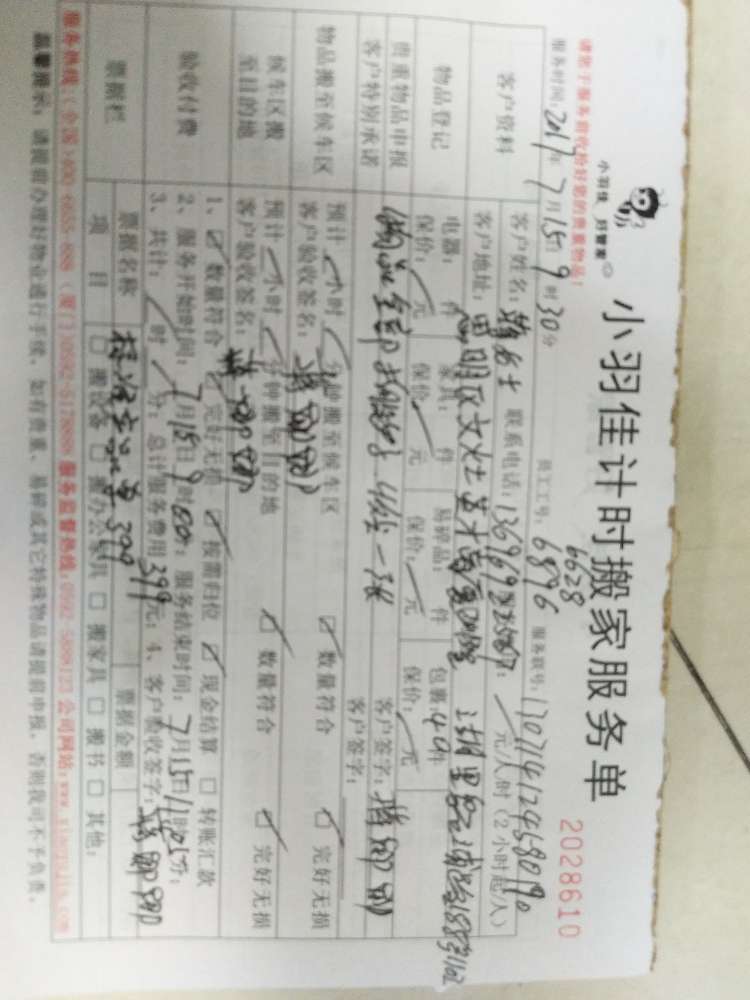 小羽佳计时搬家服务单
小羽佳 好管家
2028610
请您于服务前收拾好您的贵重物品!
员工工号: 6628
6896
服务时间: 2017年7月15日9时30分
服务联号:
客户资料
客户姓名: 女士 联系电话: 元/人/时(2小时起/人)
客户地址: 思明区文灶
物品登记
电器: 件 家具: 件 易碎品: 件 包裹: 40件
保价: 元 保价: 元 保价: 元 保价: 元
贵重物品申报
客户特别承诺
物品全部 一致
客户签字:
物品搬至候车区
预计 小时 分钟搬至候车区 ☑ 数量符合 ☑ 完好无损
客户验收签名:
候车区搬
至目的地
预计 小时 分钟搬至目的地 ☑ 数量符合 ☑ 完好无损
客户验收签名:
验收付费
1、☑ 数量符合 ☑ 完好无损 ☑ 按需归位 ☑ 现金结算 ☐ 转账汇款
2、服务开始时间: 7月15日9时00分; 服务结束时间: 7月15日11时 分;
3、共计: 时 分; 总计服务费用399元; 4、客户验收签字:
票据栏
票据名称 票据金额
项目 ☐ 搬设备 ☐ 搬办公家具 ☐ 搬家具 ☐ 搬书 ☐ 其他:
服务热线(全国)400-6855-888 (厦门)0592-5178888 服务监督热线:0592 5888123 公司网站:www.xiaoyujia.com
温馨提示: 请提前办理好物业通行手续, 如有贵重、易碎或其它特殊物品请提前申报, 否则我司不予负责。